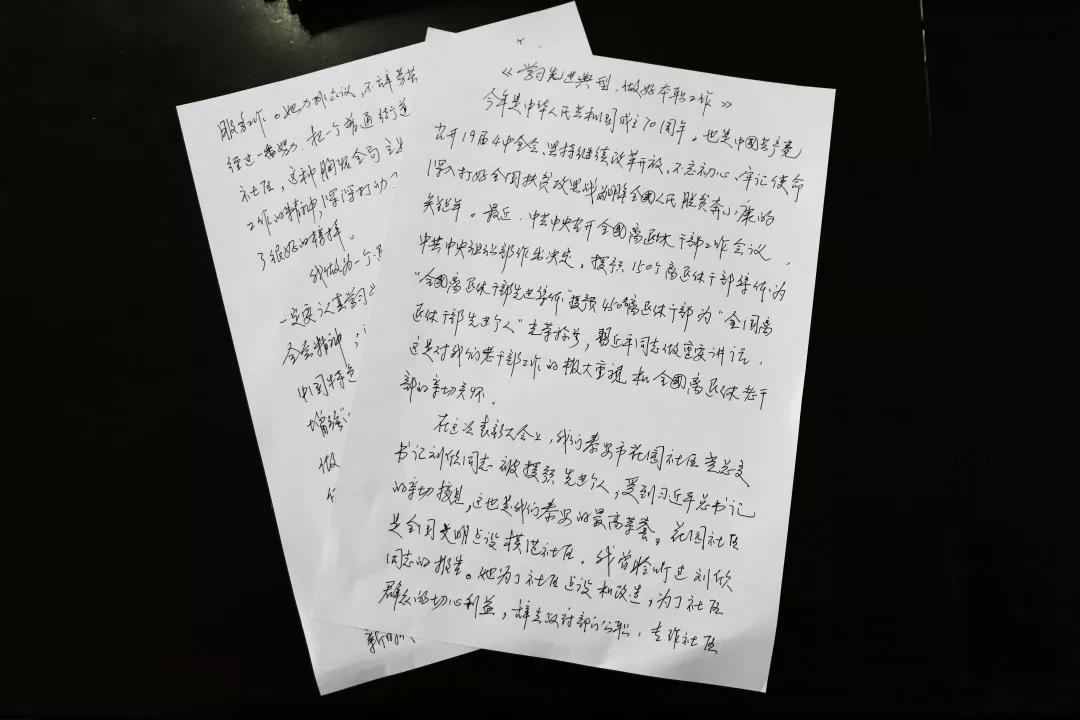 《学习先进典型，做好本职工作》
今年是中华人民共和国成立70周年，也是中国共产党
召开19届4中全会、坚持继续改革开放，不忘初心、牢记使命
深入打好全国扶贫攻坚战 全国人民脱贫奔小康的
关键年。最近，中共中央召开全国离退休干部工作会议，
中共中央组织部作出决定，授予150个离退休干部集体为
"全国离退休干部先进集体"授予450名离退休干部为"全国离
退休干部先进个人"光荣称号，习近平同志做重要讲话，
这是对我们老干部工作的极大重视和全国离退休老干
部的亲切关怀。
在这次表彰大会上，我们泰安市花园社区党总支
书记刘欣同志被授予先进个人，受到习近平总书记
的亲切接见，这也是我们泰安的最高荣誉。花园社区
是全国文明建设模范社区。我曾聆听过刘欣
同志的报告。她为了社区建设和改造，为了社区
群众的切心利益，辞去政府部门公职，专作社区
服务工作。她力排众议，不辞劳苦
经过一番努力，把一个普通
社区，这种胸怀全局
工作的精神，深深打动了
了很好的榜样。
我做为一个
一定要认真学习
全会精神，
中国特色
增强"
做